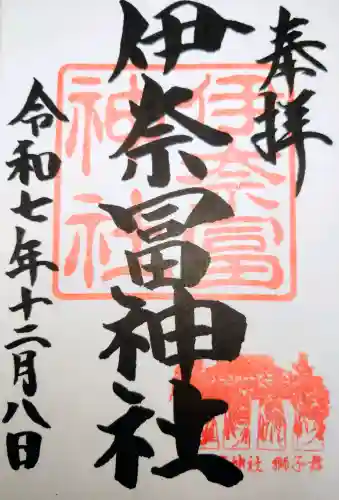 奉拝
伊奈冨神社
令和七年十二月八日
伊奈冨
神社
神社 獅子舞